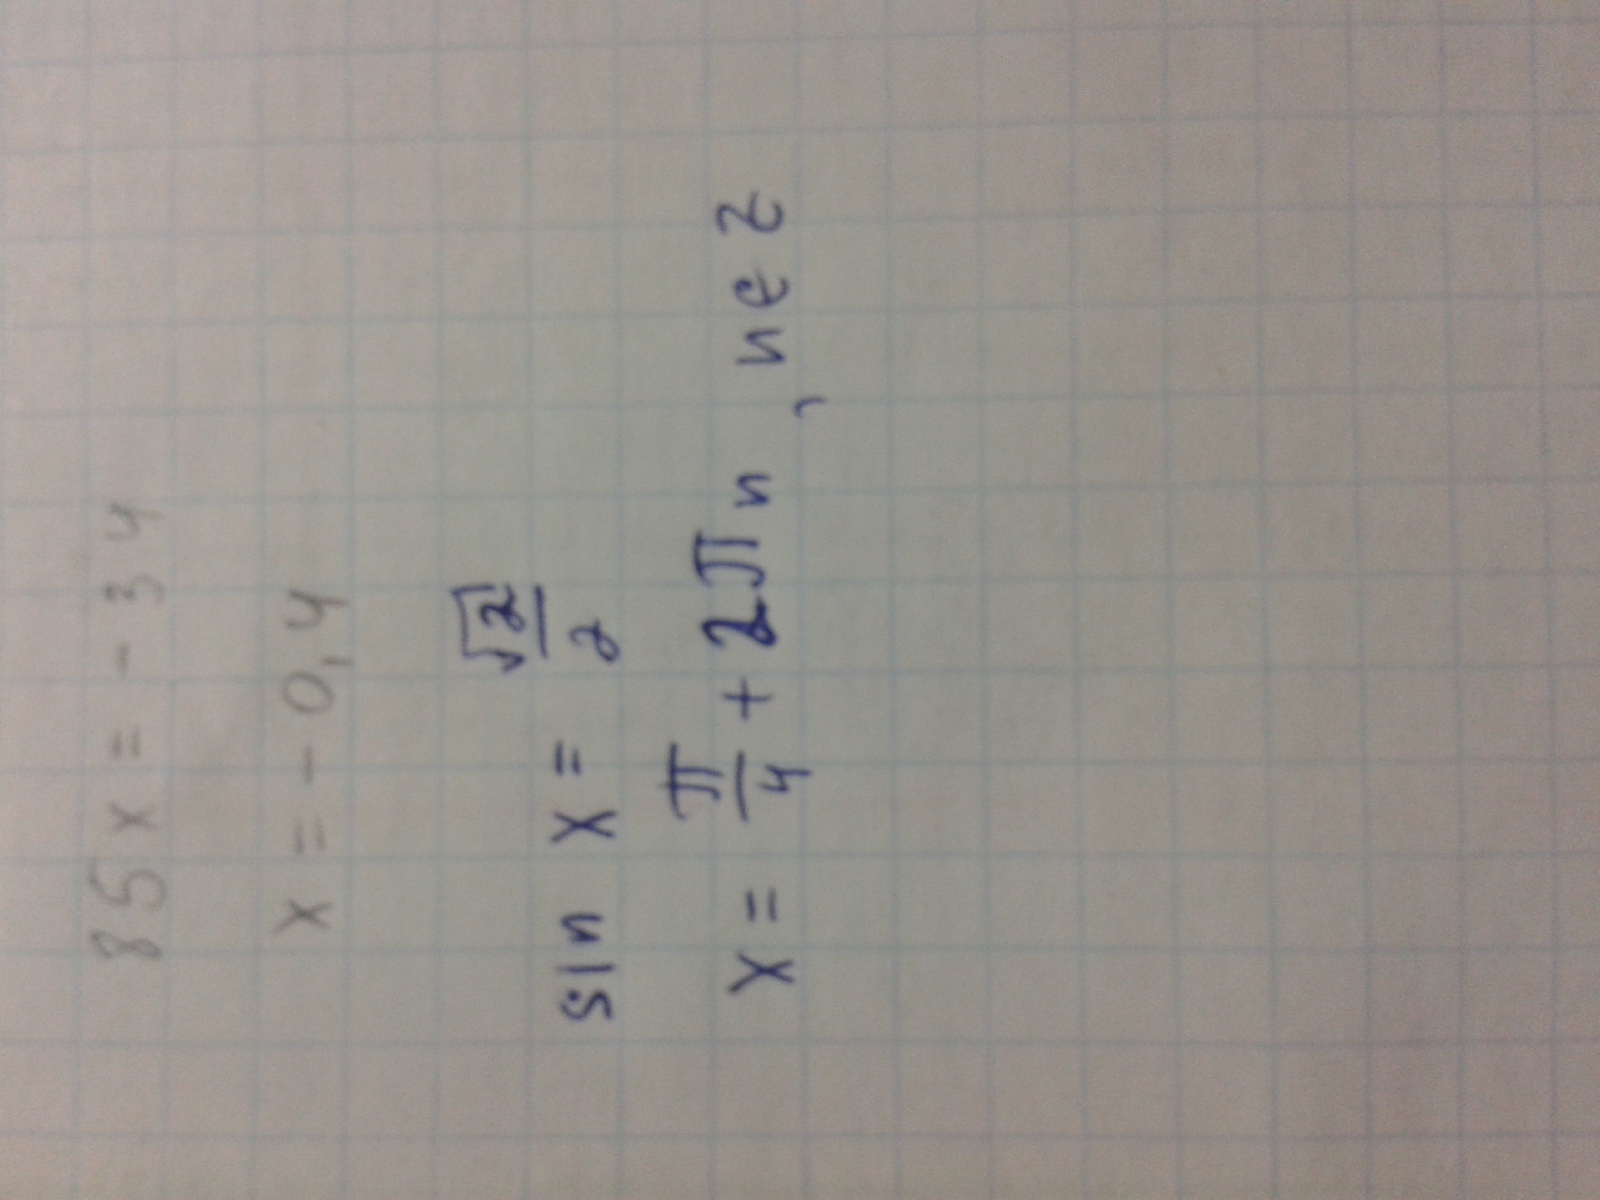 85x = -34
x = -0,4
sin x = √2/2
x = π/4 + 2πn , n∈Z